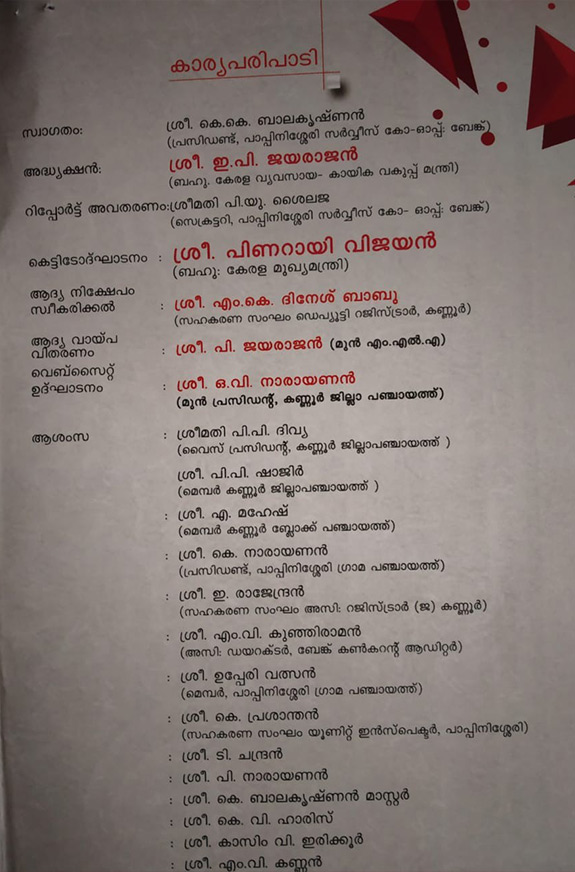 കാര്യപരിപാടി
സ്വാഗതം: ശ്രീ. കെ.കെ. ബാലകൃഷ്ണൻ
(പ്രസിഡണ്ട്, പാപ്പിനിശ്ശേരി സർവ്വീസ് കോ-ഓപ്പ്: ബേങ്ക്)
അദ്ധ്യക്ഷൻ: ശ്രീ. ഇ.പി. ജയരാജൻ
(ബഹു. കേരള വ്യവസായ- കായിക വകുപ്പ് മന്ത്രി)
റിപ്പോർട്ട് അവതരണം:ശ്രീമതി പി.യു. ശൈലജ
(സെക്രട്ടറി, പാപ്പിനിശ്ശേരി സർവ്വീസ് കോ- ഓപ്പ്: ബേങ്ക്)
കെട്ടിടോദ്ഘാടനം : ശ്രീ. പിണറായി വിജയൻ
(ബഹു: കേരള മുഖ്യമന്ത്രി)
ആദ്യ നിക്ഷേപം
സ്വീകരിക്കൽ : ശ്രീ. എം.കെ. ദിനേശ് ബാബു
(സഹകരണ സംഘം ഡെപ്യൂട്ടി റജിസ്ട്രാർ, കണ്ണൂർ)
ആദ്യ വായ്പ
വിതരണം : ശ്രീ. പി. ജയരാജൻ (മുൻ എം.എൽ.എ)
വെബ്സൈറ്റ്
ഉദ്ഘാടനം : ശ്രീ. ഒ.വി. നാരായണൻ
(മുൻ പ്രസിഡന്റ്, കണ്ണൂർ ജില്ലാ പഞ്ചായത്ത്)
ആശംസ : ശ്രീമതി പി.പി. ദിവ്യ
(വൈസ് പ്രസിഡന്റ്, കണ്ണൂർ ജില്ലാപഞ്ചായത്ത് )
ശ്രീ. പി.പി. ഷാജിർ
(മെമ്പർ കണ്ണൂർ ജില്ലാപഞ്ചായത്ത് )
: ശ്രീ. എ. മഹേഷ്
(മെമ്പർ കണ്ണൂർ ബ്ലോക്ക് പഞ്ചായത്ത്)
: ശ്രീ. കെ. നാരായണൻ
(പ്രസിഡണ്ട്, പാപ്പിനിശ്ശേരി ഗ്രാമ പഞ്ചായത്ത്)
: ശ്രീ. ഇ. രാജേന്ദ്രൻ
(സഹകരണ സംഘം അസി: റജിസ്ട്രാർ (ജ) കണ്ണൂർ)
: ശ്രീ. എം.വി. കുഞ്ഞിരാമൻ
(അസി: ഡയറക്ടർ, ബേങ്ക് കൺകറന്റ് ആഡിറ്റർ)
: ശ്രീ. ഉപ്പേരി വത്സൻ
(മെമ്പർ, പാപ്പിനിശ്ശേരി ഗ്രാമ പഞ്ചായത്ത്)
: ശ്രീ. കെ. പ്രശാന്തൻ
(സഹകരണ സംഘം യൂണിറ്റ് ഇൻസ്പെക്ടർ, പാപ്പിനിശ്ശേരി)
: ശ്രീ. ടി. ചന്ദ്രൻ
: ശ്രീ. പി. നാരായണൻ
: ശ്രീ. കെ. ബാലകൃഷ്ണൻ മാസ്റ്റർ
: ശ്രീ. കെ. വി. ഹാരിസ്
: ശ്രീ. കാസിം വി. ഇരിക്കൂർ
: ശ്രീ. എം.വി. കണ്ണൻ